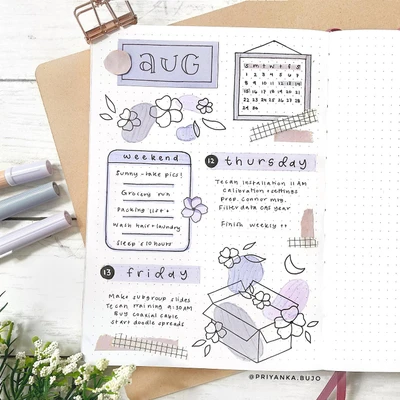 AUG
S M T W T F S
1 2 3 4 5 6 7
8 9 10 11 12 13 14
15 16 17 18 19 20 21
22 23 24 25 26 27 28
29 30
weekend
Sunny - take pics!
Grocery run
Packing list
Wash hair + laundry
Sleep ≥ 10 hours
12 thursday
Tecan installation 11 AM
Calibration + settings
Prep. Connor mtg.
Filter data CAS year
Finish weekly ++
13 friday
Make subgroup slides
Tecan training 9:30AM
Buy coaxial cable
Start doodle spreads
@PRIYANKA.BUJO